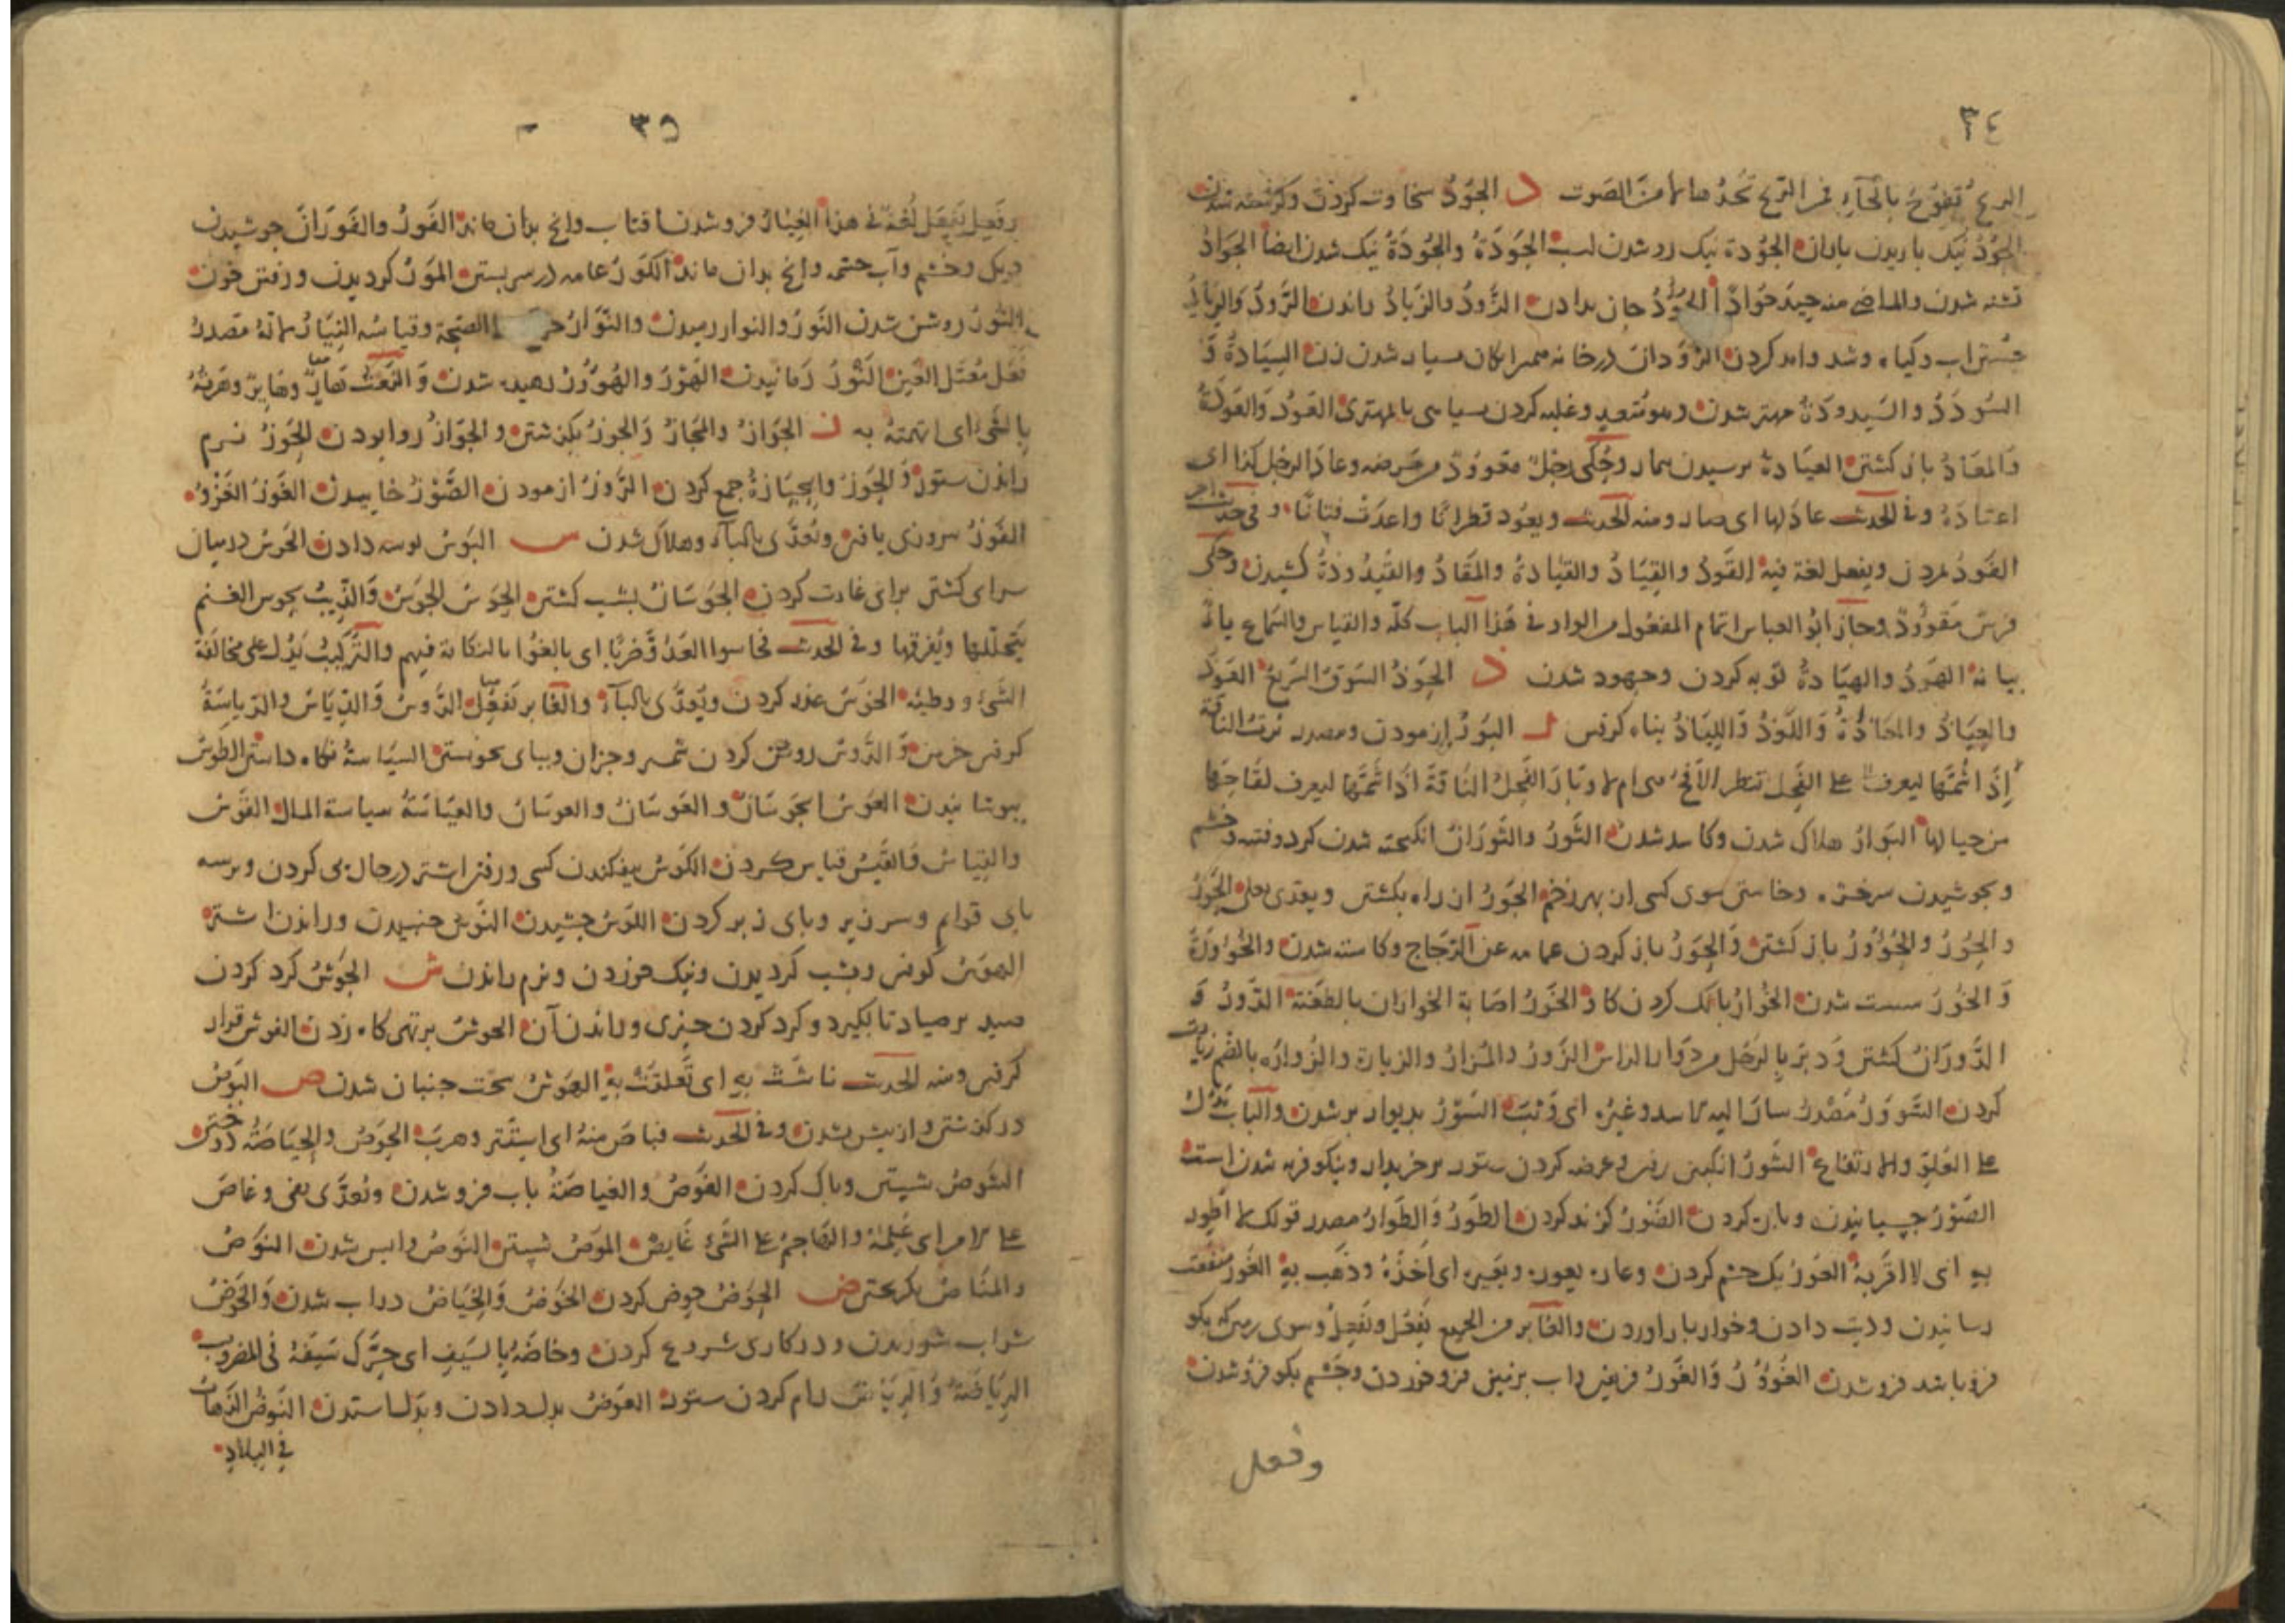 ٣٤
الريح تفوح بالحاء من الريح تجدها لا من الصوت د الجود سخاوت کردن وکرسنه شدن
الجود نیک باریدن باران الجودة نیک رو شدن اسب الجودة والجودة نیک شدن ایضا الجواد
تشنه شدن والماضی منه جید جوادا الجود جان بدادن الذود والذیاد راندن الرود والریاد
جستن اب وکیاه وشد وامد کردن الرودان در خانه همسرایکان بسیار شدن زن السیادة و
السودد والسیدودة مهتر شدن وهو متعد وغلبه کردن بسیاهی یا بمهتری العود والعودة
والمعاد باز کشتن العیادة پرسیدن بیمار وحکی رجل معوود من مرضه وعاد الرجل کذا ای
اعتاده وفی الحدیث عاد لها ای صار ومنه الحدیث ویعود قطرانا واعدت فتانا وفی حدیث اخر
الفود مردن ویفعل لغة فیه القود والقیاد والقیادة والمقاد والقیدودة کشیدن وحکی
فرس مقوود وجاز ابو العباس اتمام المفعول من الواو فی هذا الباب کله والقیاس والسماع یابا
بیانه الهود والهیادة توبه کردن وجهود شدن ذ الحوذ السوق السریع العوذ
والعیاذ والمعاذة واللوذ واللیاذ پناه کرفتن ر البور ازمودن ومصدر برت الناقة
اذا اشممتها لیعرف علی الفحل تنظر الاقح هی ام لا وبار الفحل الناقة اذا اشمتها لیعرف لقاحها
من حیالها البوار هلاک شدن وکاسد شدن الثور والثوران انکیخته شدن کرد وفتنه وخشم
وبجوشیدن سرخزه وخاستن سوی کسی از بهر زخم الجور از راه بکشتن ویعدی بعلی الحور
والحور والحوور باز کشتن والحور باز کردن عمامه عن الزجاج وکاسته شدن والحوورة
والخور سست شدن الخوار بانک کردن کاو الخور اصابة الخواران بالطعنة الدور و
الدوران کشتن ودیر بالرجل من دوار الراس الزور والمزار والزیارة والزوارة بالضم زیارت
کردن السوور مصدر سار الیه الاسد وغیره ای وثب السور بدیوار بر شدن والباب یدل
علی العلو والارتفاع الشور انکبین رفتن وعرضه کردن ستور بر خریدار ونیکو فربه شدن است
الصور چسبانیدن وپاره کردن الضور کزند کردن الطور والطوار مصدر قولک لا اطور
به ای لا اقربه العور یک چشم کردن وعاره یعوره ویعیره ای اخذه وذهب به الغور منفعت
رسانیدن ودیت دادن وخواربار اوردن والغابر من الجمیع یفعل ویفعل وسوی زمین که بکو
فرو باشد فرو شدن الغوور والغور فریض واب بزمین فرو خوردن وچشم بکو فرو شدن
وفعل
٣٥
وفعل یفعل لغة فی هذا الغیار فرو شدن افتاب وانچ بدان ماند الفور والفوران جوشیدن
دیک وخشم وآب چشمه وانچ بدان ماند الکور عمامه در سر بستن المور کردیدن ورفتن خون
النور روشن شدن النور والنوار رمیدن والنوار الصحة وقیاسه النیار لانه مصدر
فعل معتل العین النور رمانیدن الهور والهوور رهیده شدن والنعت هار وهایر وهرته
بالشیء ای اتهمته به ز الجواز والمجاز والجوز بکذشتن والجواز روا بودن الحوز نرم
راندن ستور والحوز والحیازة جمع کردن الروز ازمودن الضوز خاییدن الغوز الغزو
الفوز پیروزی یافتن وتعدی بالباء وهلاک شدن س البوس بوسه دادن الجوس در میان
سرای کشتن برای غارت کردن الجوسان بشب کشتن الحوس الجوس والذیب یحوس الغنم
یتخللها ویفرقها وفی الحدیث فحاسوا العدو ضربا ای بالغوا بالنکایة فیهم والترکیب یدل علی مخالفة
الشیء ووطیه الخوس غدر کردن ویعدی بالباء والغابر تفعل الدوس والدیاس والدیاسة
کوفتن خرمن والدوس روشن کردن شمشیر وجز ان وبپای بخوستن السیاسة نکاه داشتن الطوس
بپوشانیدن العوس الجوسان والعوسان والعوسان والعیاسة سیاسة المال القوس
والقیاس والقیس قیاس کردن الکوس بیفکندن کسی ورفتن اشتر در حال پی کردن وبر سه
پای قوایم وسر زیر وپای زبر کردن اللوس چشیدن النوس جنبیدن وراندن اشتر
الهوس کوفتن وبشب کردیدن ونیک خوردن ونرم راندن ش الحوش کرد کردن
صید بر صیاد تا بکیرد وکرد کردن چیزی وراندن آن الخوش بر تهی کاه زدن النوش فرا
کرفتن ومنه الحدیث ناشت به ای تعلقت به الهوش سخت جنبان شدن ص البوص
در کذشتن واز پیش شدن وفی الحدیث فباص منه ای استتر وهرب الحوص والحیاصة دوختن
الشوص شستن وپاک کردن الغوص والغیاصة باب فرو شدن وتعدی بفی وغاص
علی الامر ای علمه والهاجم علی الشیء غایص الموص شستن النوص واپس شدن النوص
والمناص بکریختن ض الحوض حوض کردن الخوض والخیاض در اب شدن والخوض
شراب شوریدن ودر کاری شروع کردن وخاضه بالسیف ای حرک سیفه فی المضروب
الریاضة والریاض رام کردن ستور العوض بدل دادن وبدل استدن النوض الذهاب
فی البلاد